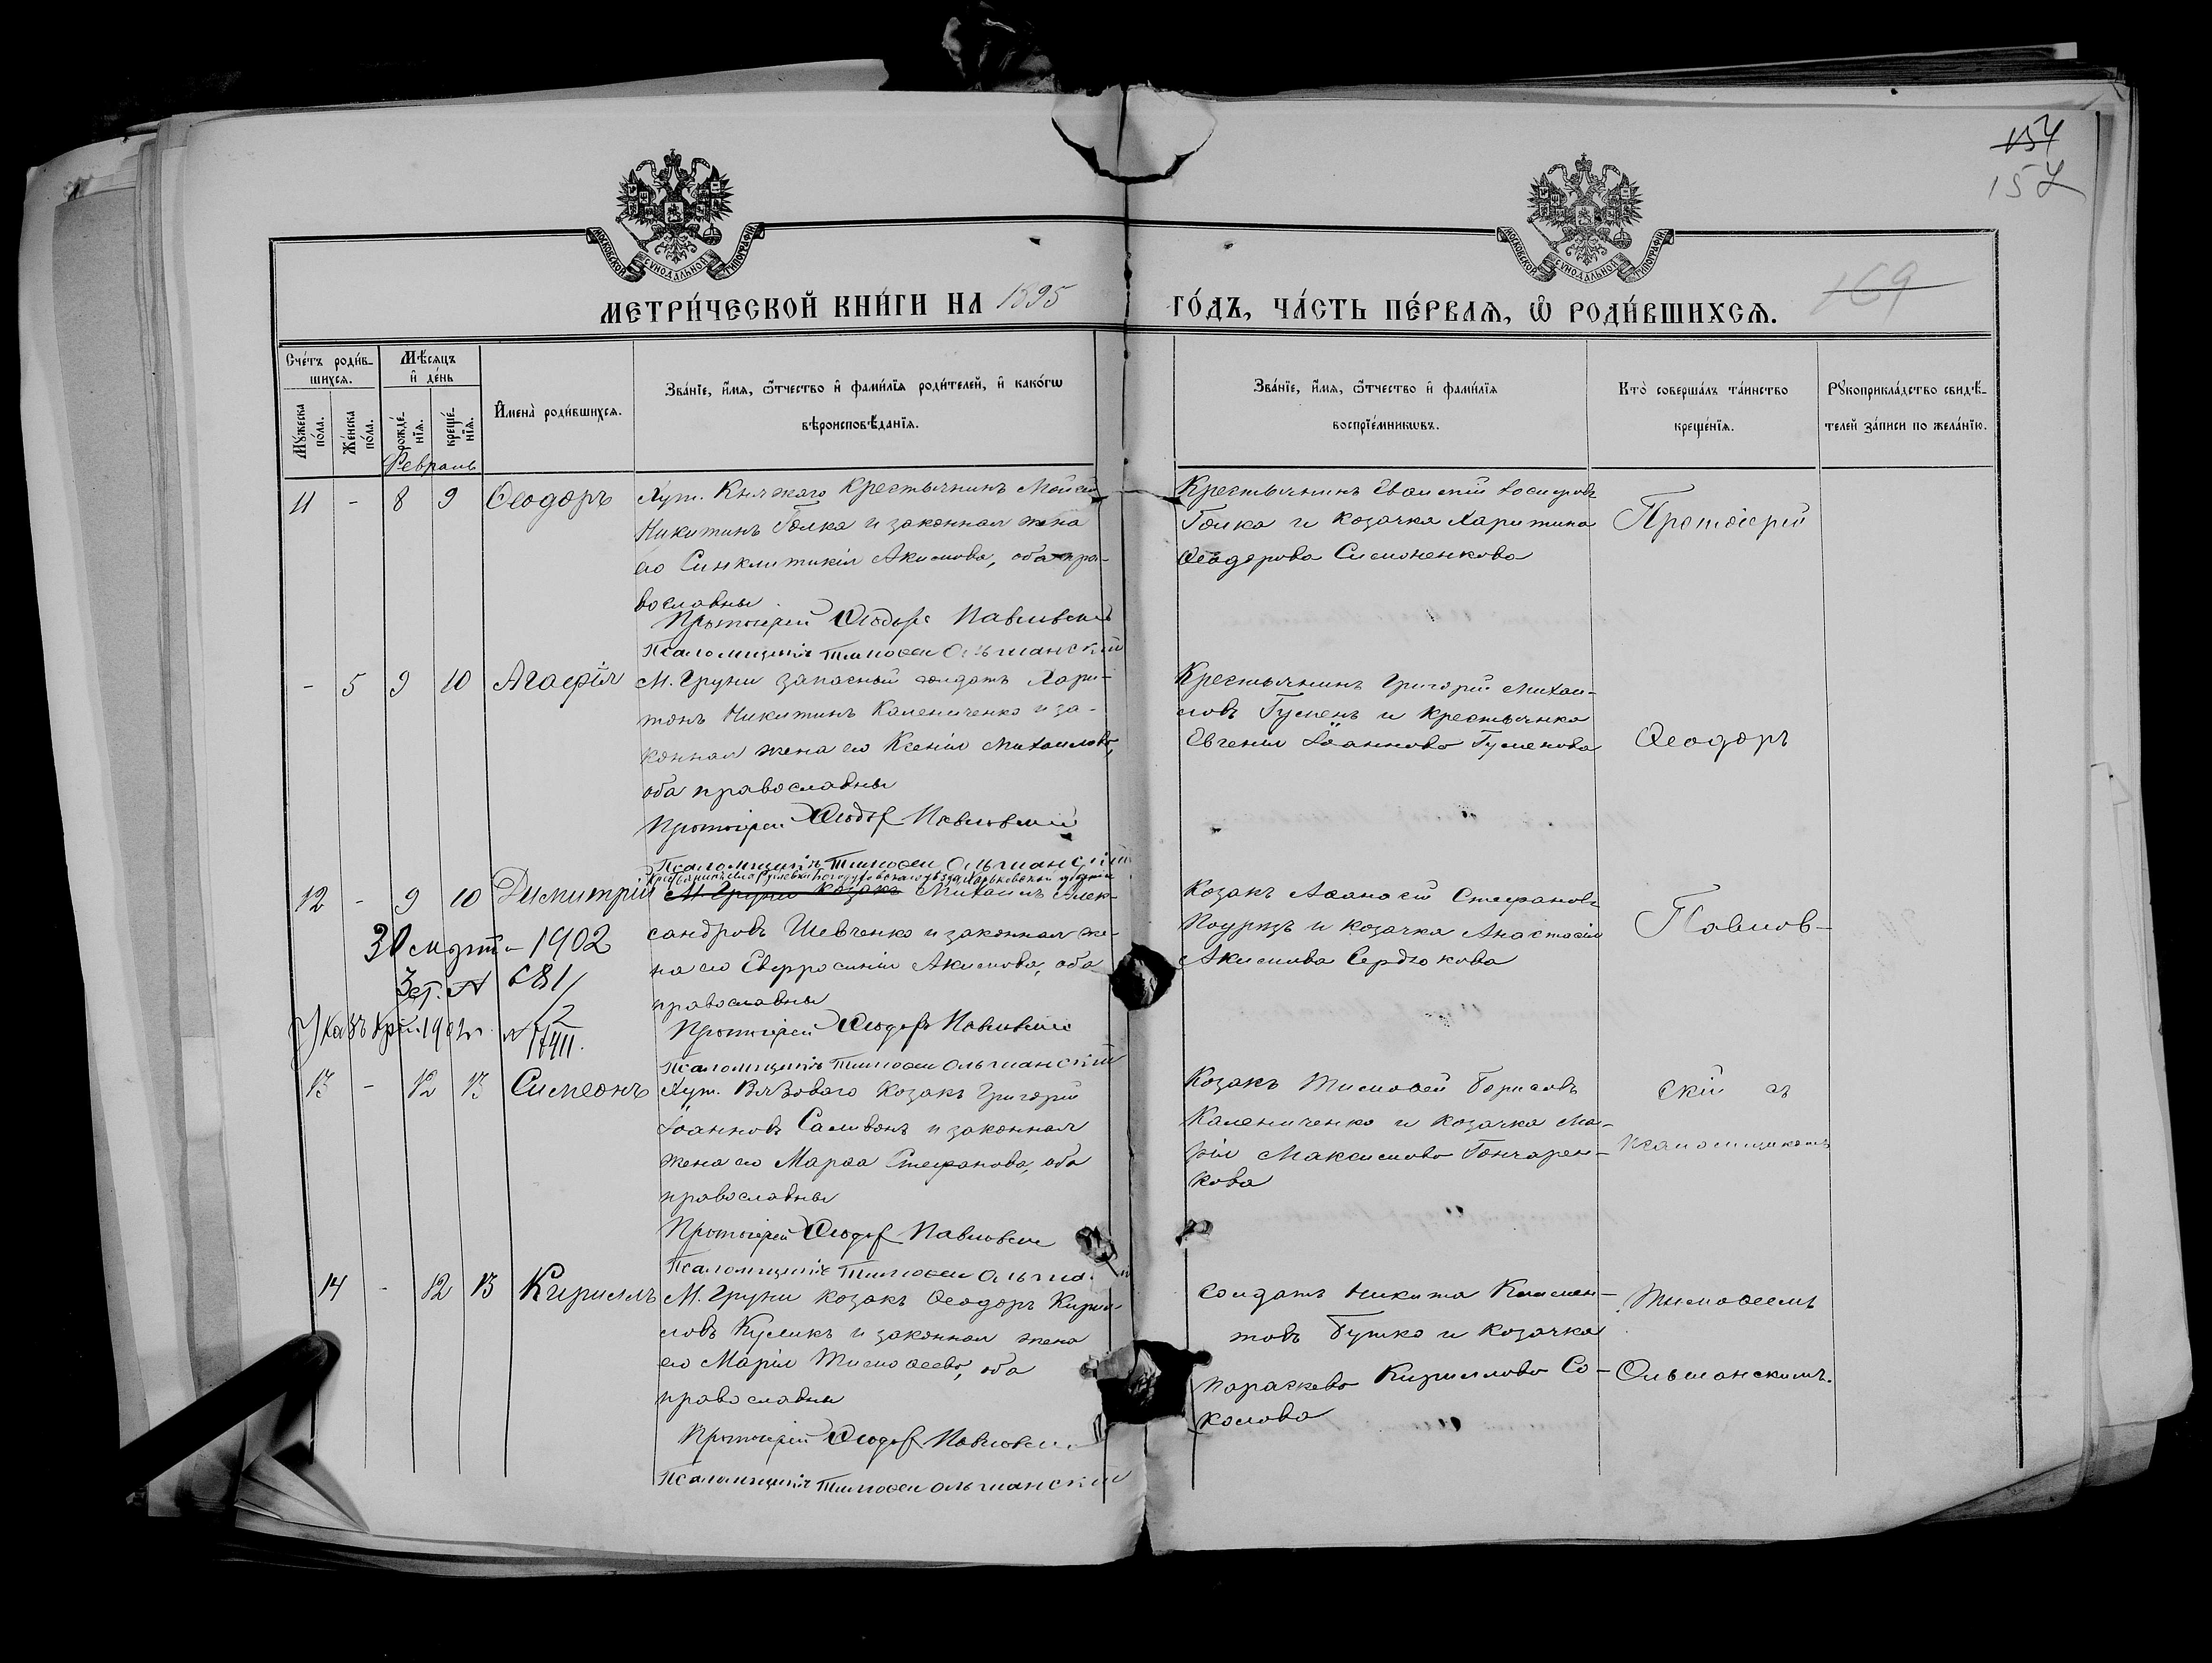 154
157
169
МОСКОВСКОЙ СѴНОДАЛЬНОЙ ТИПОГРАФІИ
МОСКОВСКОЙ СѴНОДАЛЬНОЙ ТИПОГРАФІИ
МЕТРИ́ЧЕСКОЙ КНИ́ГИ НА 1895 ГО́ДЪ, ЧА́СТЬ ПЕ́РВАѦ, Ѡ҆ РОДИ́ВШИХСѦ.
Сче́тъ роди́в-
шихсѧ.
Мꙋ́жеска по́ла.
Же́нска по́ла.
Мѣ́сѧцъ и҆ де́нь
рожде́-нїѧ.
креще́-нїѧ.
И҆мена̀ роди́вшихсѧ.
Зва́нїе, и҆́мѧ, ѻ҆́тчество и҆ фами́лїѧ роди́телей, и҆ како́гѡ
вѣроисповѣ́данїѧ.
Зва́нїе, и҆́мѧ, ѻ҆́тчество и҆ фами́лїѧ
воспрїе́мникѡвъ.
Кто̀ соверша́лъ та́инство
креще́нїѧ.
Рꙋкоприкла́дство свидѣ́-
телей за́писи по жела́нїю.
Февраль
11 - 8 9 Ѳеодоръ Хут. Княжаго крестьянинъ Мойсей
Никитинъ Голка и законная жена
его Синклитикія Акимова, оба пра-
вославны
Протоіерей Ѳеодоръ Павловскій
Псаломщикъ Тимоѳей Ольшанскій
Крестьянинъ Іосифовъ
Голка и козачка Харитина
Ѳеодорова Симоненкова
Протоіерей
- 5 9 10 Агафія М. Груни запасный солдатъ Хари-
тонъ Никитинъ Калениченко и за-
конная жена его Ксенія Михайлова,
оба православны
Протоіерей Ѳеодоръ Павловскій
Псаломщикъ Тимоѳей Ольшанскій
Крестьянинъ Григорій Михаи-
ловъ Гуменъ и крестьянка
Евгенія Іоаннова Гуменова
Ѳеодоръ
Крестьянинъ села Богодуховскаго уѣзда Харьковской губерніи
12 - 9 10 Димитрій М. Груни козакъ Михаилъ Алек-
сандровъ Шевченко и законная же-
на его Евфросинія Акимова, оба
православны
Протоіерей Ѳеодоръ Павловскій
Псаломщикъ Тимоѳей Ольшанскій
30 марта 1902
Зст. № 681/2
Указъ 1902 г. №
Козакъ Аѳанасій Стефановъ
и козачка Анастасія
Акимова Сердюкова
Павлов-
13 - 12 13 Симеонъ Хут. Вязоваго козакъ Григорій
Іоанновъ Саливонъ и законная
жена его Марѳа Стефанова, оба
православны
Протоіерей Ѳеодоръ Павловскій
Псаломщикъ Тимоѳей Ольша
Козакъ Тимоѳей Борисовъ
Калениченко и козачка Ма-
рія Максимова Гончарен-
кова
скій съ
псаломщикомъ
14 - 12 13 Кириллъ М. Груни козакъ Ѳеодоръ Кирил-
ловъ Куликъ и законная жена
его Марія Тимоѳеева, оба
православны
Протоіерей Ѳеодоръ Павловскій
Псаломщикъ Тимоѳей Ольшанскій
Солдатъ Никита Климен-
товъ Бутко и козачка
Параскева Кириллова Со-
колова
Тимоѳеемъ
Ольшанскимъ.